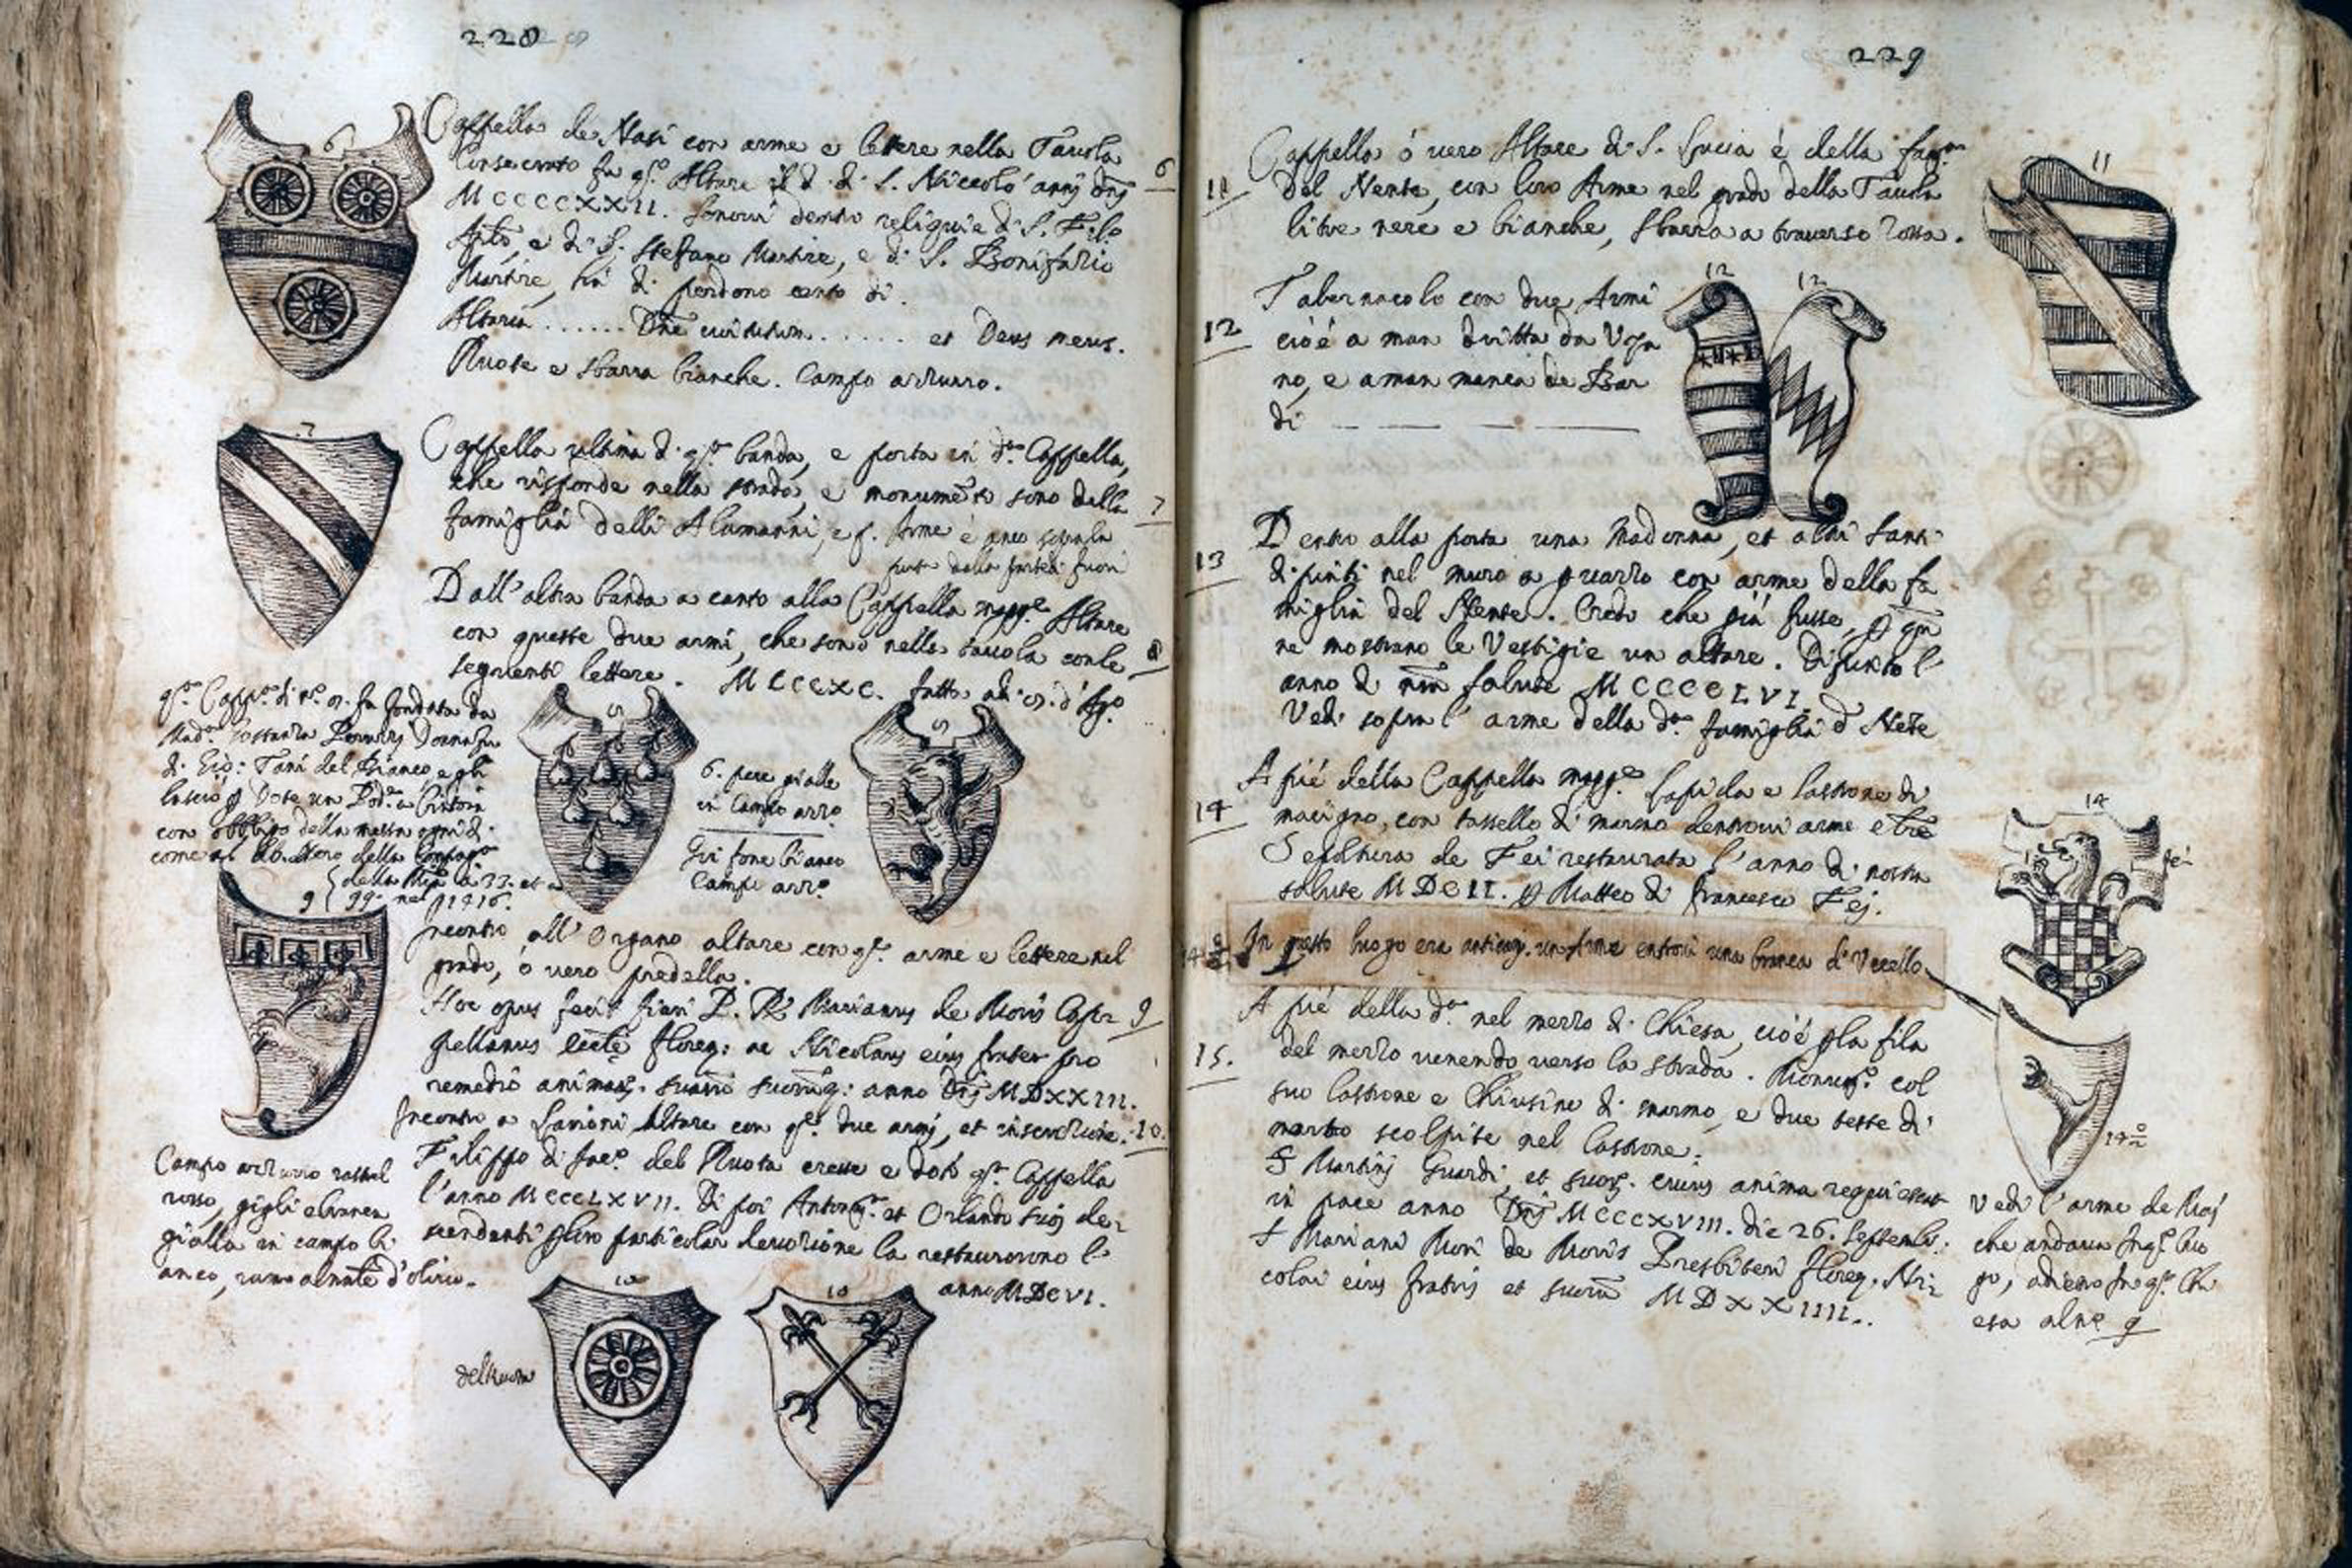 228
6
Cappella de Nasi con arme e lettere nella Tavola
Consecrato fu qsto Altare il d. di S. Niccolò anñ dñj
6
MCCCCXXII. Sonovi dentro reliquie di S. Filo
Aplo, e di S. Stefano Martire, e di S. Bonifazio
Martire, hà di perdono cento dì.
Altaria ...... Dñe virtutum ...... et Deus meus.
Ruote e sbarra bianche. Campo azzurro.
7
Cappella ultima di qsta banda, e porta in da Cappella,
che risponde nella strada, e monumeti sono della
7
famiglia delli Alamanni, e s. Arme è anco sopra la
porta della fuori
Dall'altra banda a canto alla Cappella magge Altare
con queste due armi, che sono nella tavola con le
8
seguenti lettere. MCCCXC. fatta adi d'Ago
qsta Cappa di fu fondata da
Mada Costanza Donna fu
di Gio: Tani del Bianco, e gli
lasciò p Dote un Pode a
con obbligo della messa ogni dì
come al della
della a 33. et a
99. nel 1416.
8
8
6. pere gialle
in Campo azzo
Grifone bianco
Campo azzo
9
Incontro all'Organo altare con qste arme e lettere nel
grado, ò vero predella.
Hoc opus fecit fieri P. Marianus de Moris Cap
9
pellanus eccle floreñ: ac Nicolaus eius frater pro
remedio animaz. suarū suorumq: anno Dñj MDXXIII.
Incontro a Altare con qste due armj, et inscrizione.
10.
Filippo di del Ruota eresse e dotò qsta Cappella
l'anno MCCCLXVII. Di poi Antono et Orlando suoj de
scendenti p loro particolar devozione la restaurorono l'
anno MDCVI.
Campo azzurro rastrel
rosso, gigli e branca
gialla in campo bi
anco, ramo d'olivo.
10
10
del Ruota
229
11
Cappella ò vero Altare di S. Lucia è della famª
11
del Nente, con loro Arme nel grado della Tavola
liste nere e bianche, sbarra a traverso rossa.
12
12
Tabernacolo con due Armi
12
cioè a man dritta da Vza
no, e a man manca de Bar
di
Dentro alla porta una Madonna, et altri Santi
13
dipinti nel muro a guazzo con arme della fa
miglia del Nente. Credo che già fusse,
ne mostrano le Vestigie un altare. Dipinto l'
anno di nrã salute MCCCCLVI.
Vedi sopra l'arme della da famiglia d Nēte
A piè della Cappella magge lapida e lastrone di
14
macigno, con tassello di marmo dentrovi arme e lre
Sepoltura de Fei restaurata l'anno di nostra
salute MDCII. p Matteo di Francesco Fej.
14
fei
In questo luogo era anticaͫ. un Arme entrovi una branca di Vccello
A piè della da nel mezzo di Chiesa, cioè p la fila
15.
del mezzo venendo verso la strada. Monumo col
suo lastrone e Chiusino di marmo, e due teste di
morto scolpite nel lastrone.
S Martinj Guardi, et suoȝ. cuius anima requiescat
in pace anno Dñj MCCCXVIII. die 26. Septemb:
S Mariani Mori de Moris Presbiteri floreñ. Ni
colai eius fratris et suorū MDXXIIII.
14
Vedi l'arme de
che andava In qsto luo
go, adietro In qsta Chi
esa al nē 9